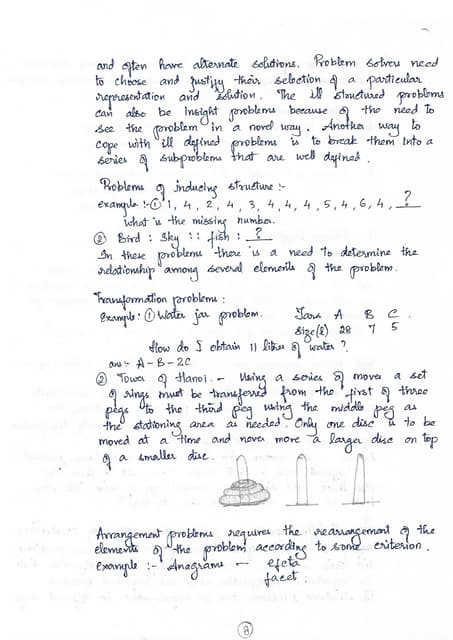 and often have alternate solutions. Problem solvers need
to choose and justify their selection of a particular
representation and solution. The ill structured problems
can also be insight problems because of the need to
see the problem in a novel way. Another way to
cope with ill defined problems is to break them into a
series of subproblems that are well defined.
Problems of inducing structure :-
example :- ① 1, 4, 2, 4, 3, 4, 4, 4, 5, 4, 6, 4, ?
what is the missing number.
② Bird : Sky :: fish : ?
In these problems there is a need to determine the
relationship among several elements of the problem.
Transformation problems :
Example : ① Water jar problem. Jars A B C
Size(l) 28 7 5
How do I obtain 11 litres of water ?
ans :- A-B-2C
② Tower of Hanoi. - Using a series of moves a set
of rings must be transferred from the first of three
pegs to the third peg using the middle peg as
the stationing area as needed. Only one disc is to be
moved at a time and never move a larger disc on top
of a smaller disc.
Arrangement problems requires the rearrangement of the
elements of the problem according to some criterion.
example :- Anagrams - efcta
facet.